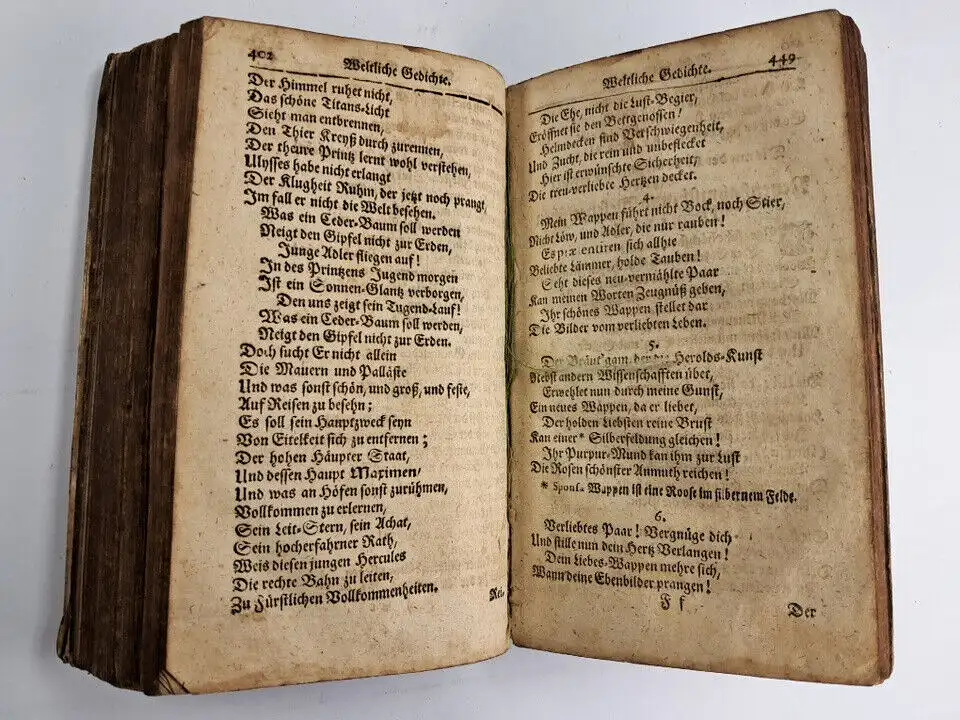 402
Weltliche Gedichte.
Der Himmel ruhet nicht,
Das schöne Titans-Licht
Sieht man entbrennen,
Den Thier Kreyß durch zurennen,
Der theure Printz lernt wohl verstehen,
Ulysses habe nicht erlangt
Der Klugheit Ruhm, der jetzt noch prangt,
Im fall er nicht die Welt besehen.
Was ein Ceder-Baum soll werden
Neigt den Gipfel nicht zur Erden,
Junge Adler fliegen auf!
In des Printzens Jugend morgen
Ist ein Sonnen-Glantz verborgen,
Den uns zeigt sein Tugend-Lauf!
Was ein Ceder-Baum soll werden,
Neigt den Gipfel nicht zur Erden.
Doch sucht Er nicht allein
Die Mauern und Palläste
Und was sonst schön, und groß, und feste,
Auf Reisen zu besehn;
Es soll sein Hauptzweck seyn
Von Eitelkeit sich zu entfernen;
Der hohen Häupter Staat,
Und dessen Haupt Maximen/
Und was an Höfen sonst zurühmen,
Vollkommen zu erlernen,
Sein Leit-Stern, sein Achat,
Sein hocherfahrner Rath,
Weis diesen jungen Hercules
Die rechte Bahn zu leiten,
Zu Fürstlichen Vollkommenheiten.
Rei-
Weltliche Gedichte.
449
Die Ehe, nicht die Lust-Begier,
Eröffnet sie den Bettgenossen!
Helmdecken sind Verschwiegenheit,
Und Zucht, die rein und unbeflecket
Hier ist erwünschte Sicherheit,
Die treu-verliebte Hertzen decket.
4.
Mein Wappen führt nicht Bock, noch Stier,
Nicht Löw, und Adler, die nur rauben!
Es præsentiren sich allhie
Beliebte Lämmer, holde Tauben!
Seht dieses neu-vermählte Paar
Kan meinen Worten Zeugnüß geben,
Ihr schönes Wappen stellet dar
Die Bilder vom verliebten Leben.
5.
Der Bräutgam, der die Herolds-Kunst
Nebst andern Wissenschafften übet,
Erwehlet nun durch meine Gunst,
Ein neues Wappen, da er liebet,
Der holden Liebsten reine Brust
Kan einer * Silberfeldung gleichen!
Ihr Purpur-Mund kan ihm zur Lust
Die Rosen schönster Anmuth reichen!
* Sponsæ Wappen ist eine Roose im silbernem Felde.
6.
Verliebtes Paar! Vergnüge dich
Und stille nun dein Hertz Verlangen!
Dein Liebes-Wappen mehre sich,
Wann deine Ebenbilder prangen!
F f
Der